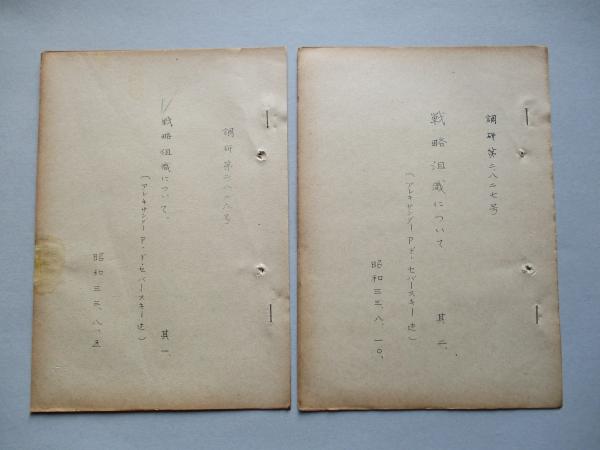 調研第二八二七号
戦略組織について 其二、
(アレキサンダー P・ド・セバースキー述)
昭和三三、八、一〇、
調研第二八二六号
戦略組織について、
(アレキサンダー P・ド・セバースキー述)
其一、
昭和三三、八、五